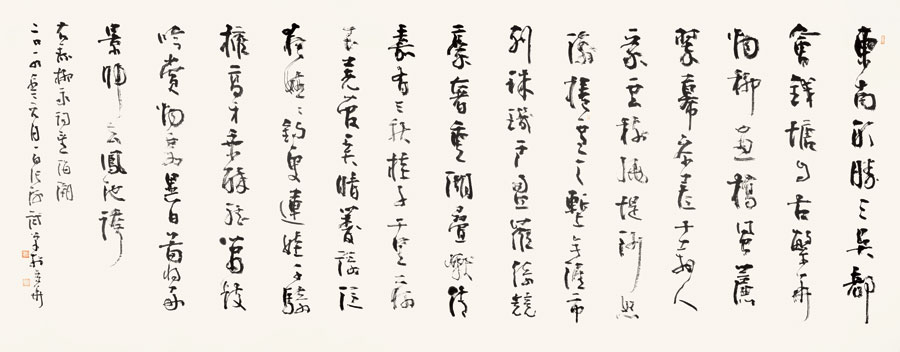 東南形勝三吳都
會錢塘自古繁華
烟柳畫橋風簾
翠幕參差十万人
家雲樹繞堤沙怒
濤捲霜雪天塹無涯市
列珠璣戶盈羅綺競
豪奢重湖疊巘清
嘉有三秋桂子十里荷
花羌管弄晴菱歌泛
夜嬉嬉釣叟蓮娃千騎
擁高牙乘醉聽簫鼓
吟賞烟霞異日圖將好
景歸去鳳池誇
右錄柳永詞
六月一日